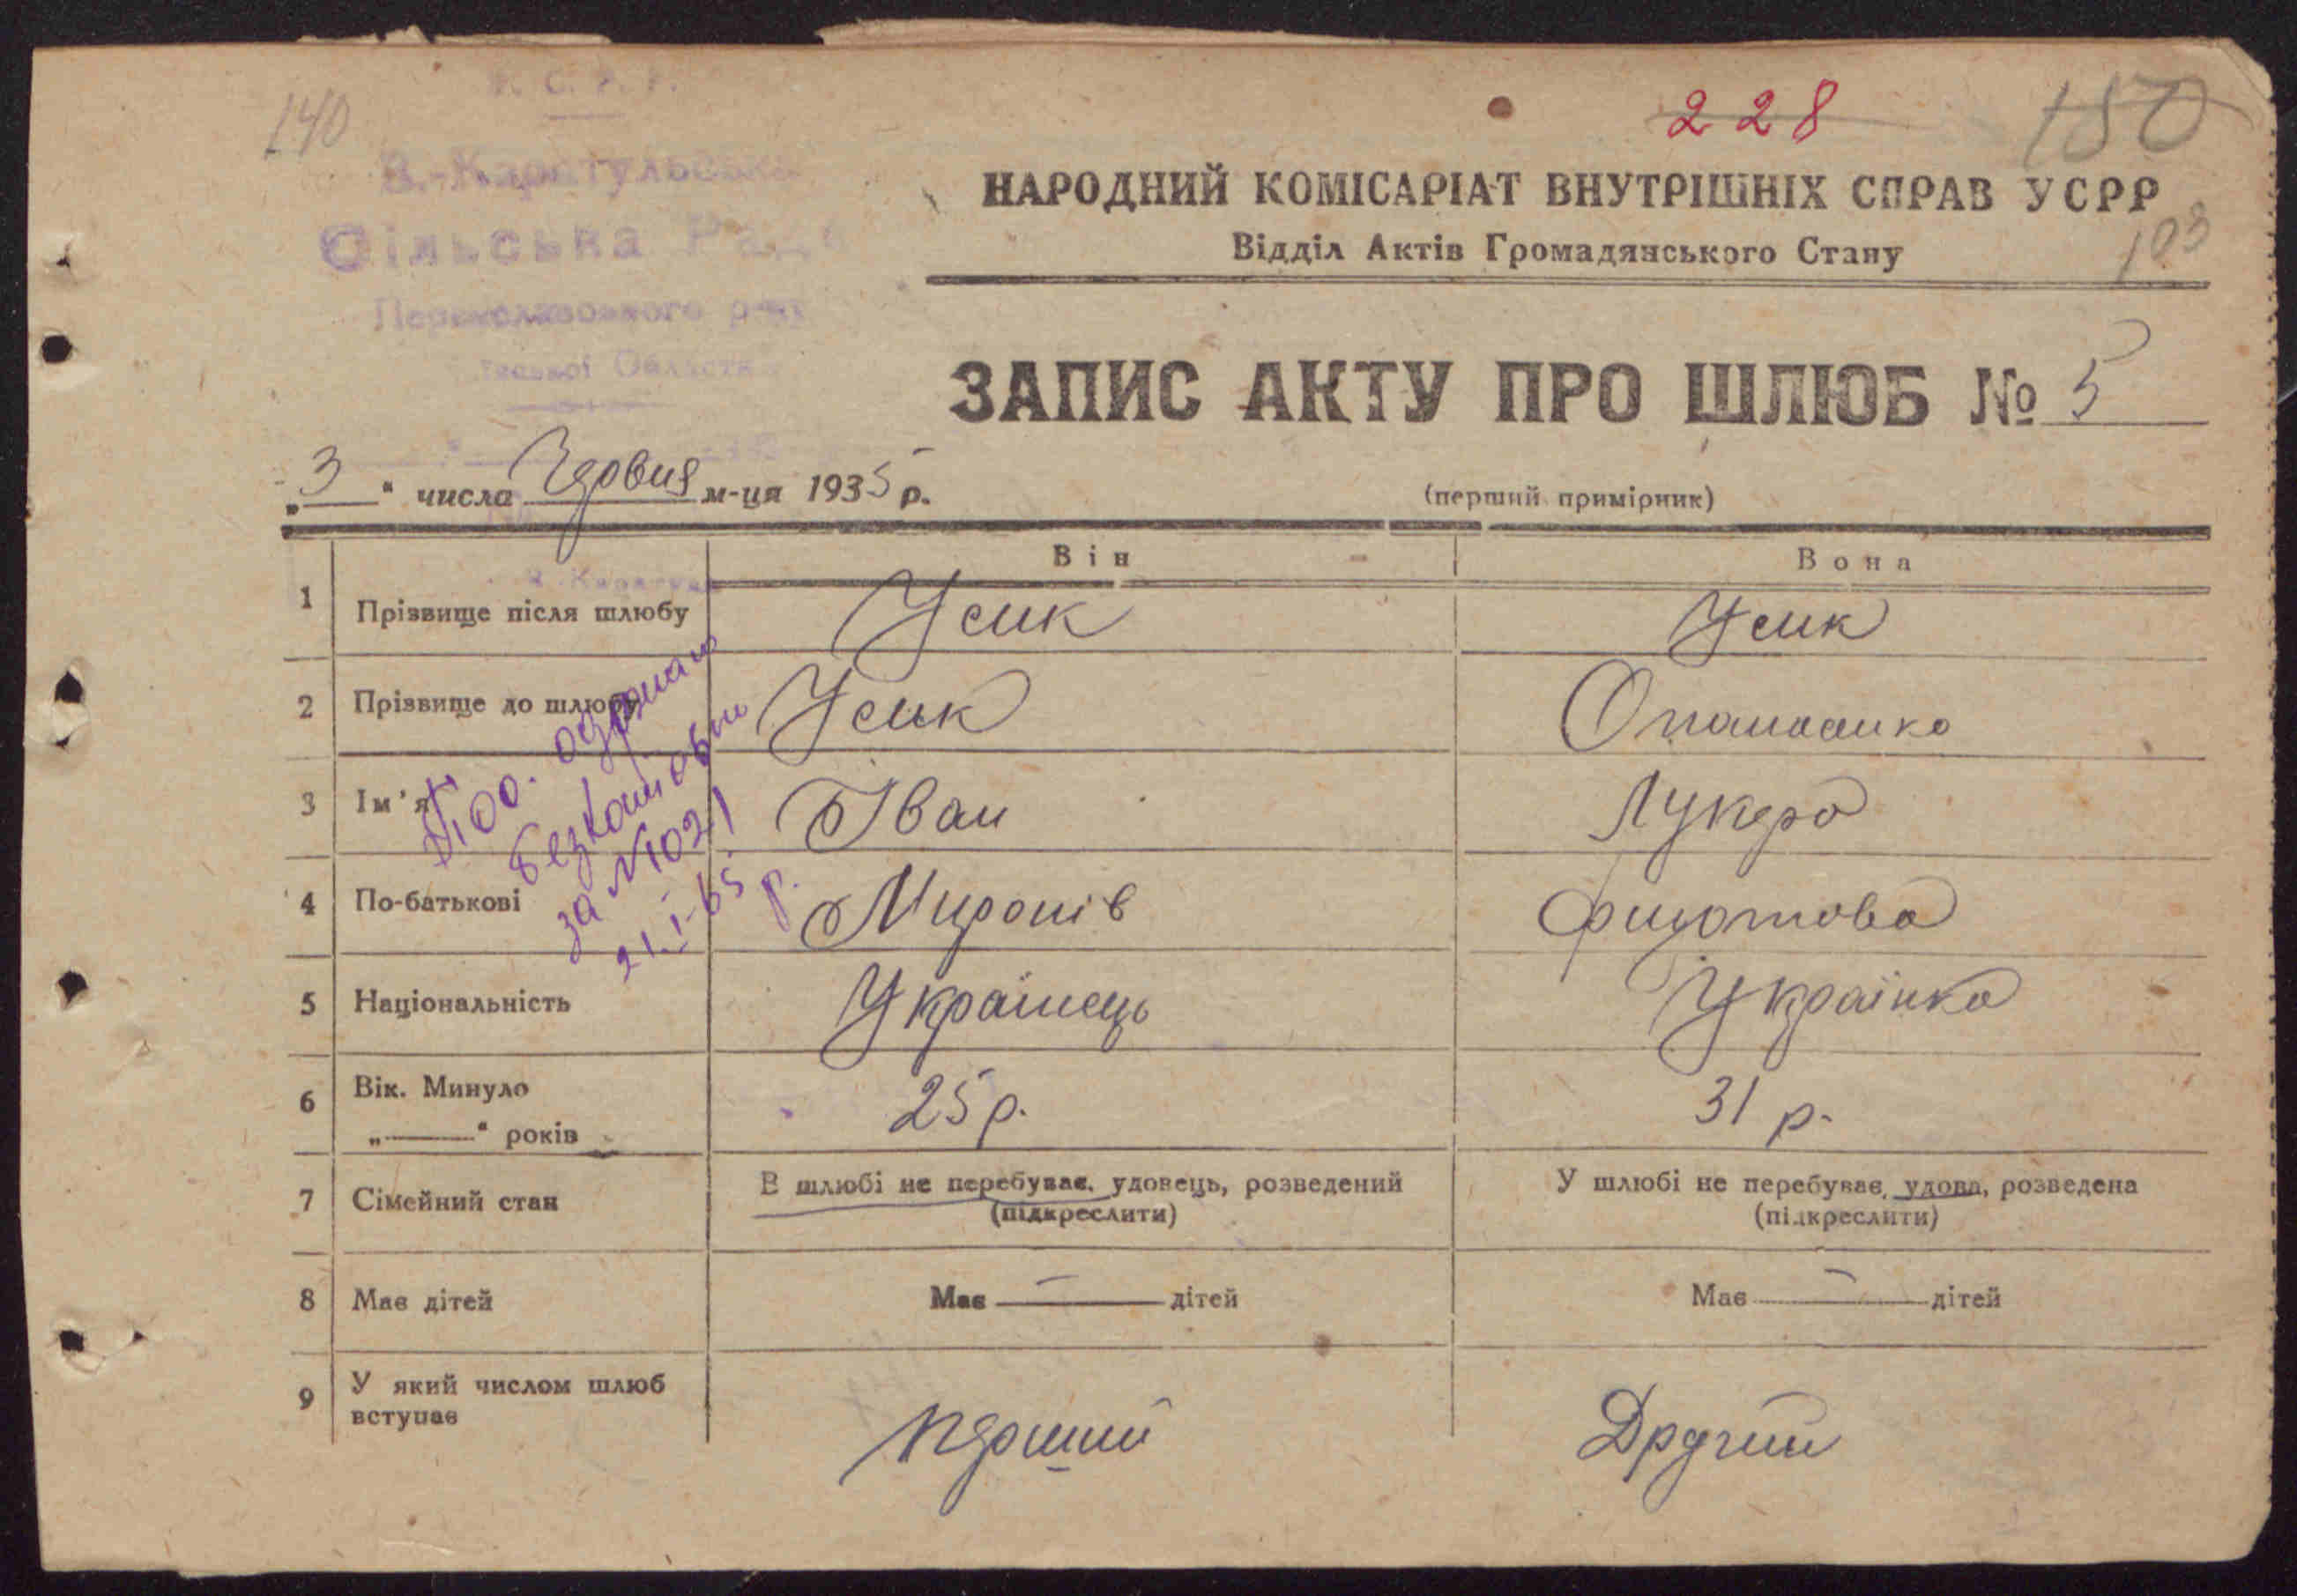 140
228
150
В.-Каратульська
Сільська Рада
Переяславського р-ну
Області
НАРОДНИЙ КОМІСАРІАТ ВНУТРІШНІХ СПРАВ УСРР
Відділ Актів Громадянського Стану
193
ЗАПИС АКТУ ПРО ШЛЮБ № 5
„3“ числа м-ця 1935 р.
(перший примірник)
Він Вона
1 Прізвище після шлюбу Усик Усик
2 Прізвище до шлюбу Усик Опанасенко
3 Ім'я Іван Лукера
4 По-батькові Миронів Федотова
5 Національність Українець Українка
6 Вік. Минуло
„——“ років 25 р. 31 р.
7 Сімейний стан В шлюбі не перебуває, удовець, розведений У шлюбі не перебуває, удова, розведена
(підкреслити) (підкреслити)
8 Має дітей Має — дітей Має — дітей
9 У який числом шлюб
вступає Перший Другий
безкоштовно
за № 1021
21.I-65 р.